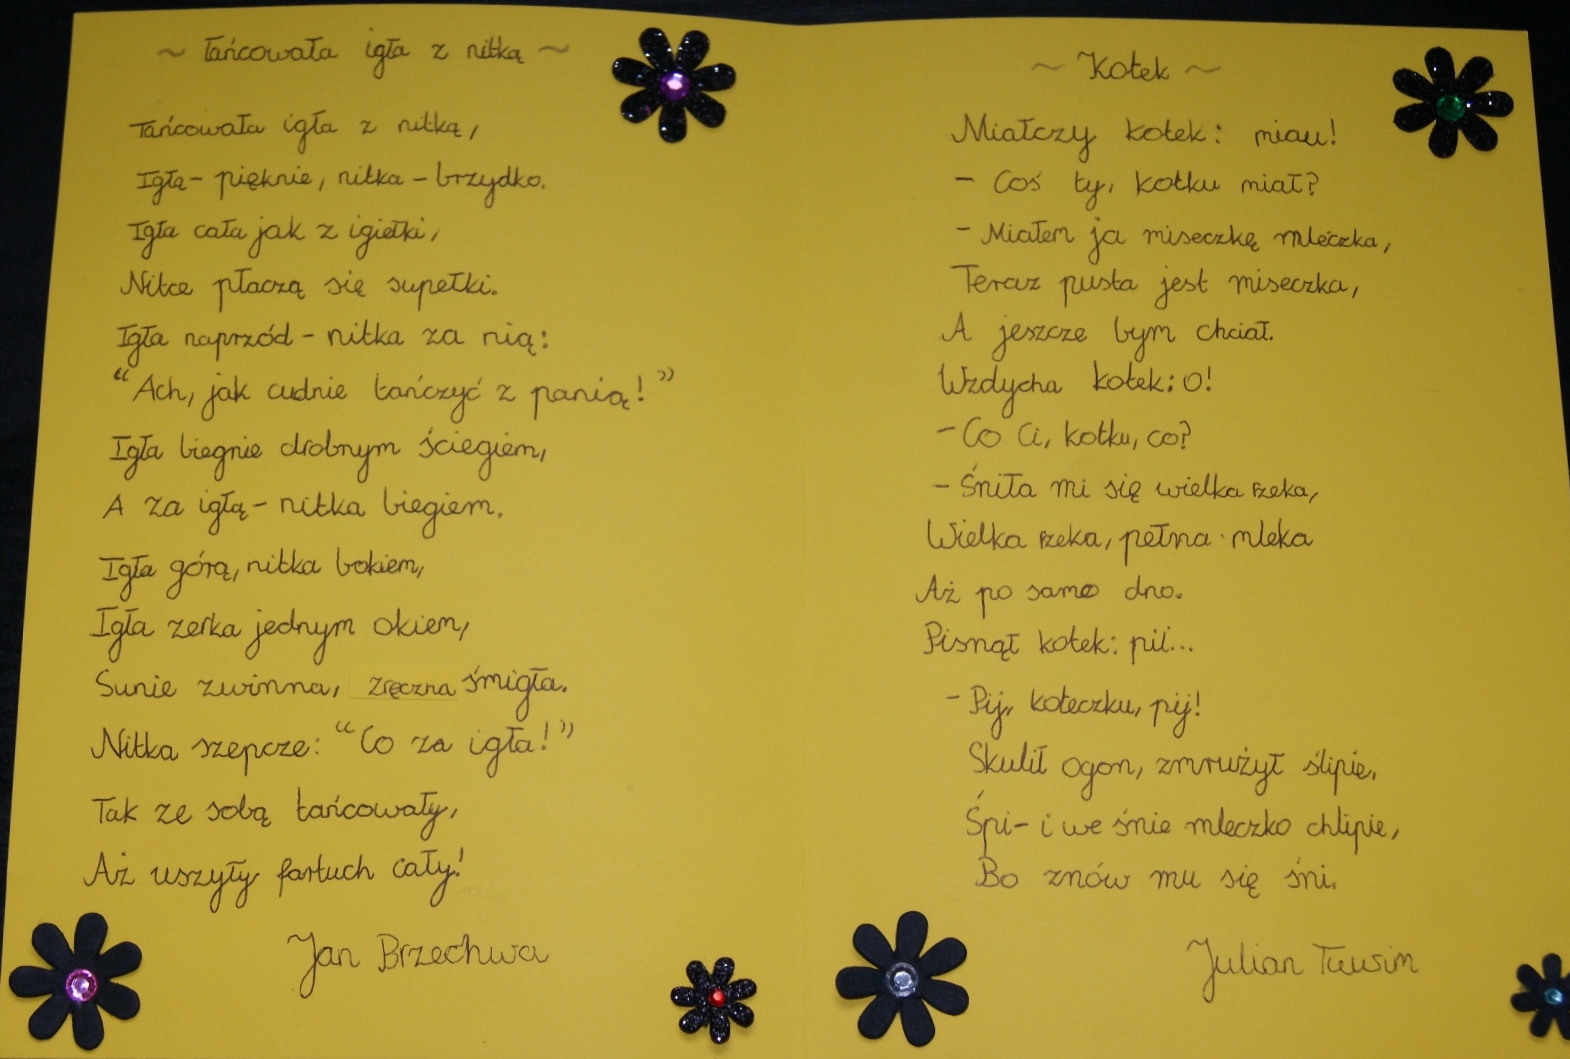 ~ Tańcowała igła z nitką ~
Tańcowała igła z nitką,
Igła - pięknie, nitka - brzydko.
Igła cała jak z igiełki,
Nitce płaczą się supełki.
Igła naprzód - nitka za nią:
"Ach, jak cudnie tańczyć z panią!"
Igła biegnie drobnym ściegiem,
A za igłą - nitka biegiem.
Igła górą, nitka bokiem,
Igła zerka jednym okiem,
Sunie zwinna, zręczna śmigła.
Nitka szepcze: "Co za igła!"
Tak ze sobą tańcowały,
Aż uszyły fartuch cały!
Jan Brzechwa
~ Kotek ~
Miałczy kotek: miau!
- Coś ty, kotku miał?
- Miałem ja miseczkę mleczka,
Teraz pusta jest miseczka,
A jeszcze bym chciał.
Wzdycha kotek: O!
- Co Ci, kotku, co?
- Śniła mi się wielka rzeka,
Wielka rzeka, pełna mleka
Aż po samo dno.
Pisnął kotek: pii...
- Pij, koteczku, pij!
Skulił ogon, zmrużył ślipie,
Śpi - i we śnie mleczko chlipie,
Bo znów mu się śni.
Julian Tuwim